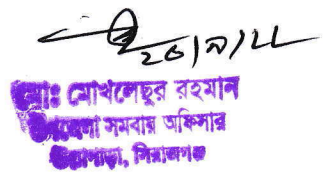 ২৬/৯/২২
মোঃ মোখলেছুর রহমান
উপজেলা সমবায় অফিসার
উল্লাপাড়া, সিরাজগঞ্জ